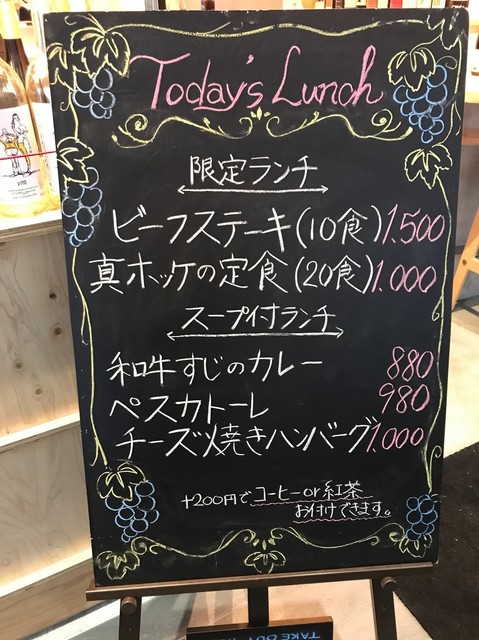 Today's Lunch
限定ランチ
ビーフステーキ(10食)1.500
真ホッケの定食(20食)1.000
スープ付ランチ
和牛すじのカレー 880
ペスカトーレ 980
チーズ焼きハンバーグ1.000
+200円でコーヒーor紅茶
お付けできます。
TAKE OUT